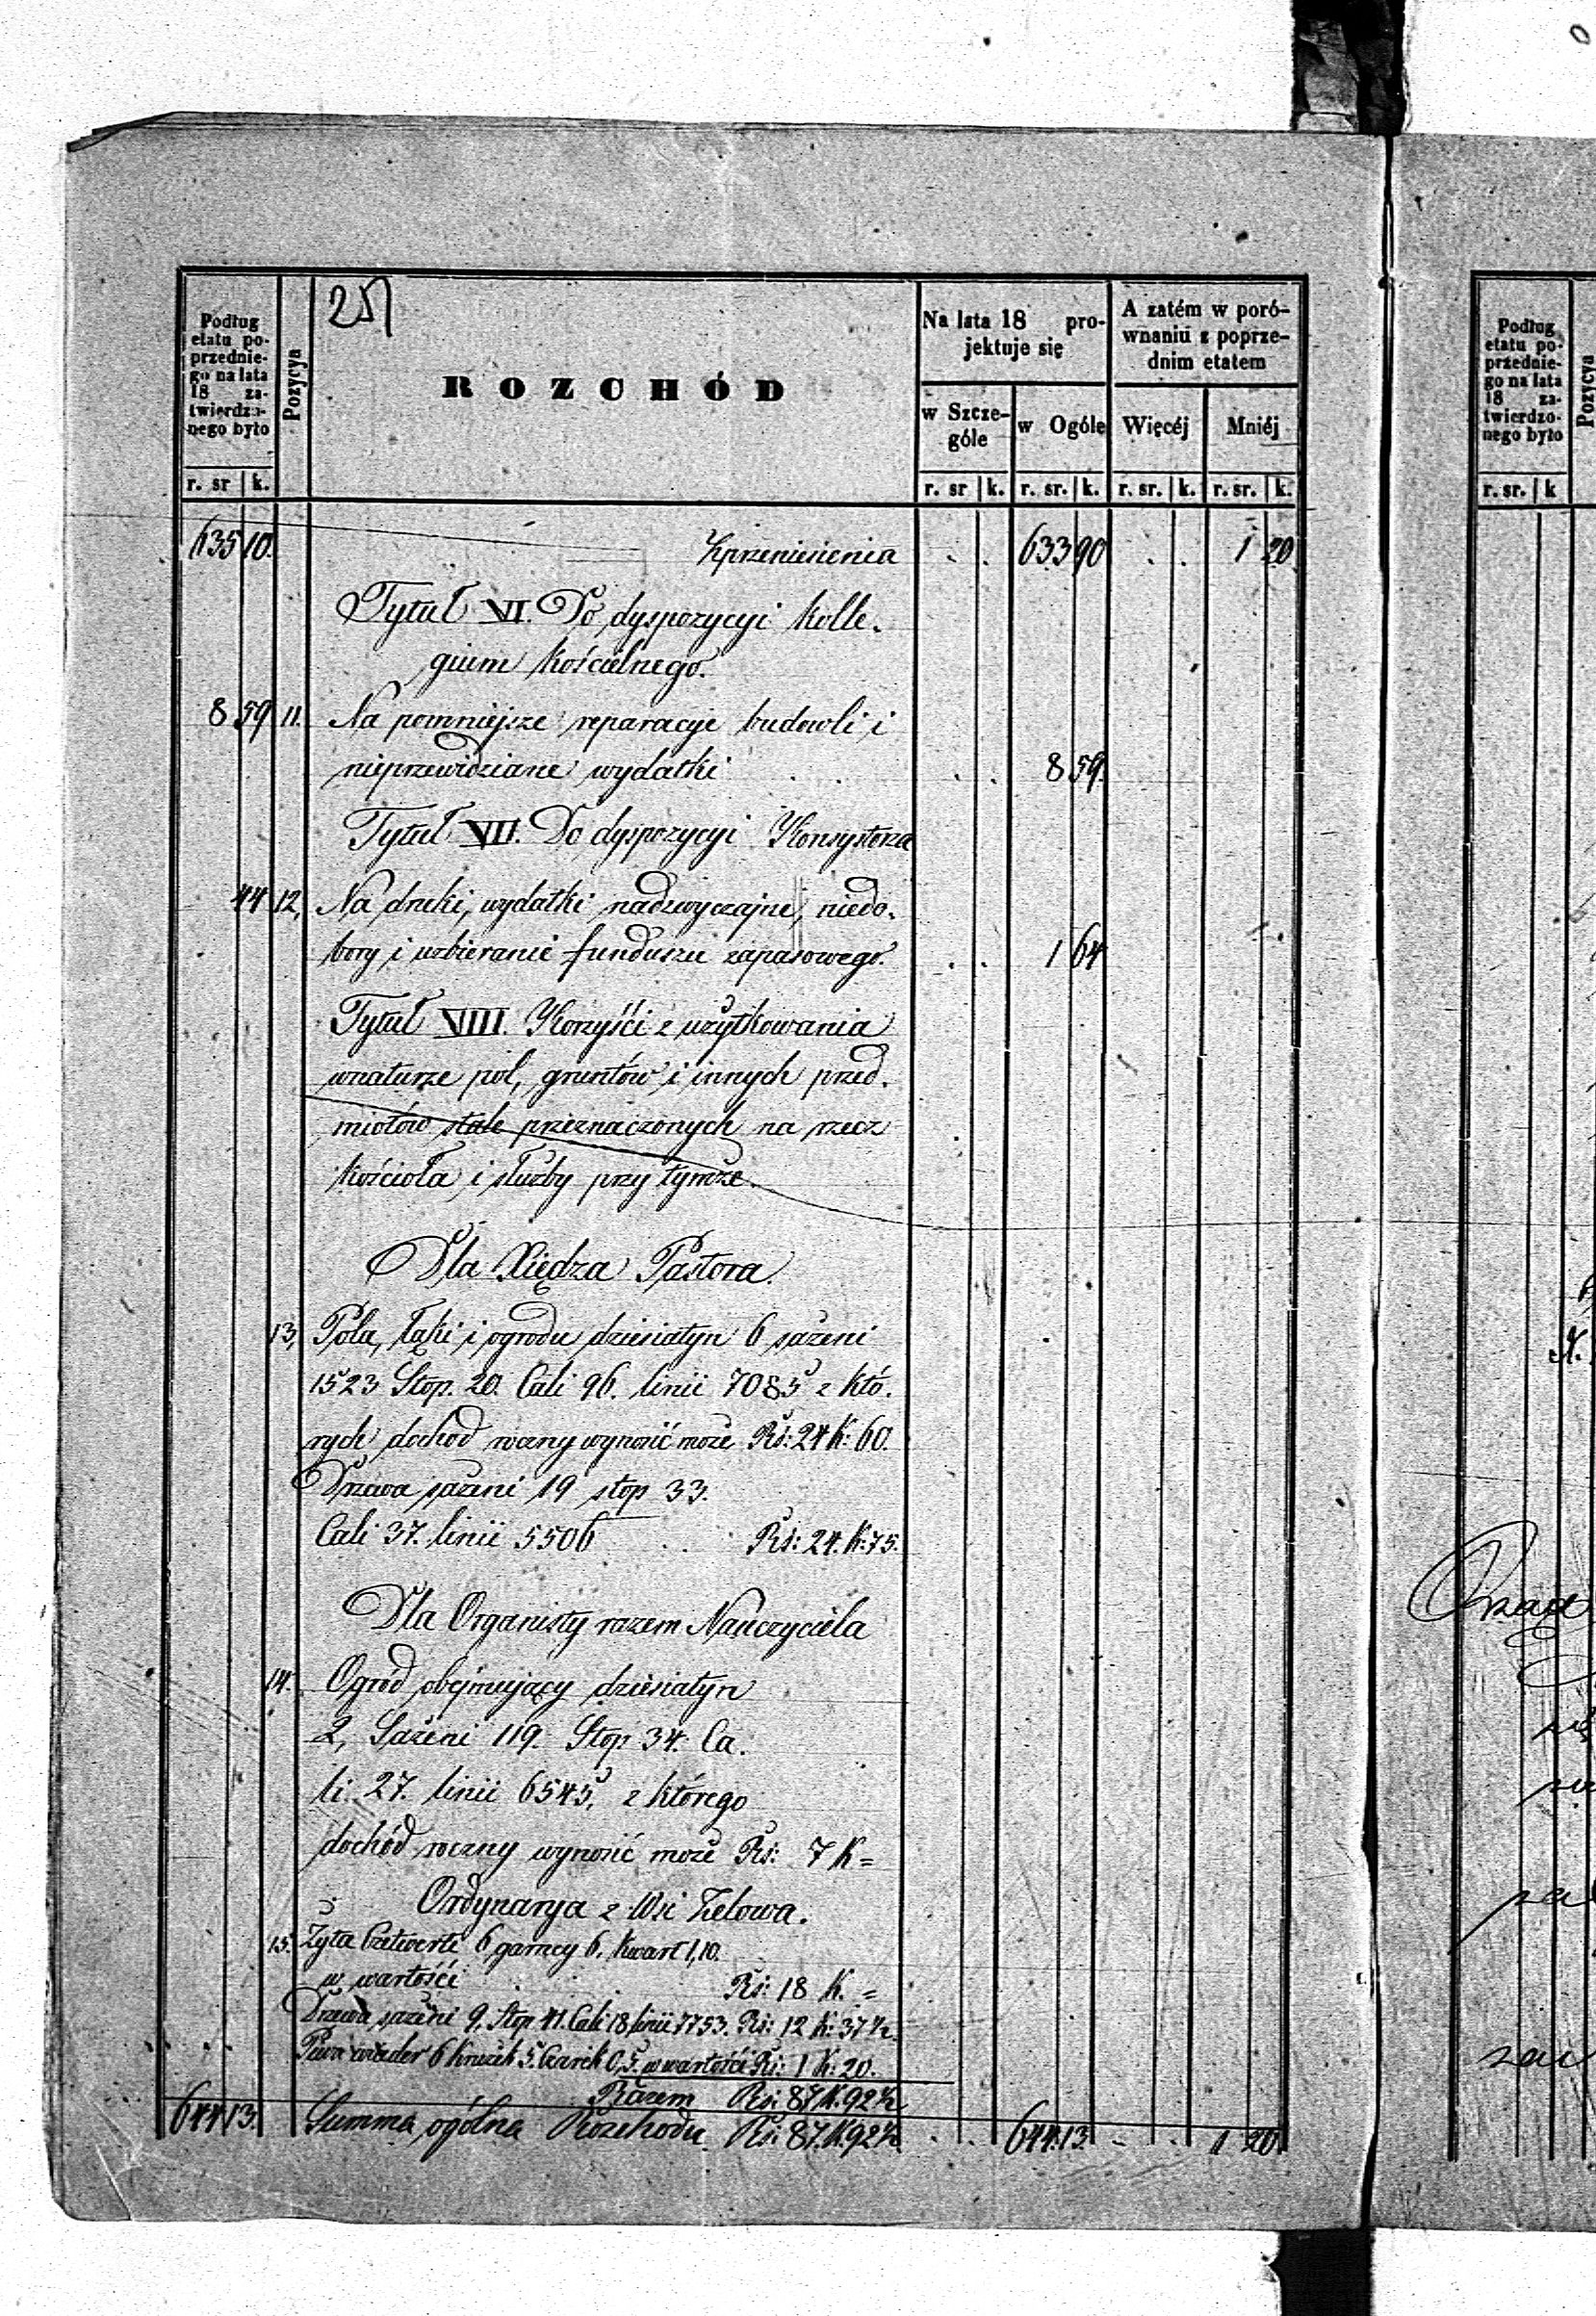 251
Podług
etatu po-
przednie-
go na lata
18 za-
twierdzo-
nego było
Pozycya
ROZCHÓD
Na lata 18 pro-
jektuje się
A zatém w poró-
wnaniu z poprze-
dnim etatem
w Szcze-
góle
w Ogóle
Więcéj
Mniéj
r. sr k. r. sr k. r. sr. k. r. sr. k. r. sr. k.
635 10. Zprzeniesienia . . 633 90 . . 1 20
Tytuł VI. Do dyspozycyi Kolle.
gium Kościelnego.
8 59 11. Na pomniejsze reparacye budowli i
nieprzewidziane wydatki . . 8 59.
Tytuł VII. Do dyspozycyi Konsystorza
44 12, Na druki, wydatki nadzwyczajne, niedo.
bory i uzbieranie funduszu zapasowego. . . 1 64
Tytuł VIII. Korzyści z użytkowania
wnaturze pól, gruntów i innych przed.
miotów stale przeznaczonych na rzecz
Kościoła i służby przy tymże.
Dla Xiędza Pastora.
13, Pola, łąki i ogrodu dziesiatyn 6 sażeni
1523 Stop. 20. Cali 96. linii 7085 z któ.
rych dochód roczny wynosić może Rs: 24 K: 60.
Drzewa sażeni 19 stop 33.
Cali 37. linii 5506 . . Rs: 24. K: 75.
Dla Organisty razem Nauczyciela
14. Ogród obejmujący dziesiatyn
2, Sażeni 119. Stop 34. Ca.
li. 27. linii 6545, z którego
dochód roczny wynosić może Rs: 7 K =
Ordynarya z Wsi Zelowa.
15. Żyta Czetwerti 6 garncy 6, kwart 1,10.
w wartości Rs: 18 K. =
Drzewa sażeni 9, Stop 41. Cali 18 linii 7753. Rs: 12 K: 37 ½.
Piwa wiader 6 Krużek 5. Czarek 0,5. w wartości Rs: 1 K: 20.
Razem Rs: 87 K. 92 ½
644 13. Summa ogólna Rozchodu Rs: 87. K. 92 ½ . . 644. 13. . . 1 20
Podług
etatu po-
przednie-
go na lata
18 za-
twierdzo-
nego było
Pozycya
r. sr. k